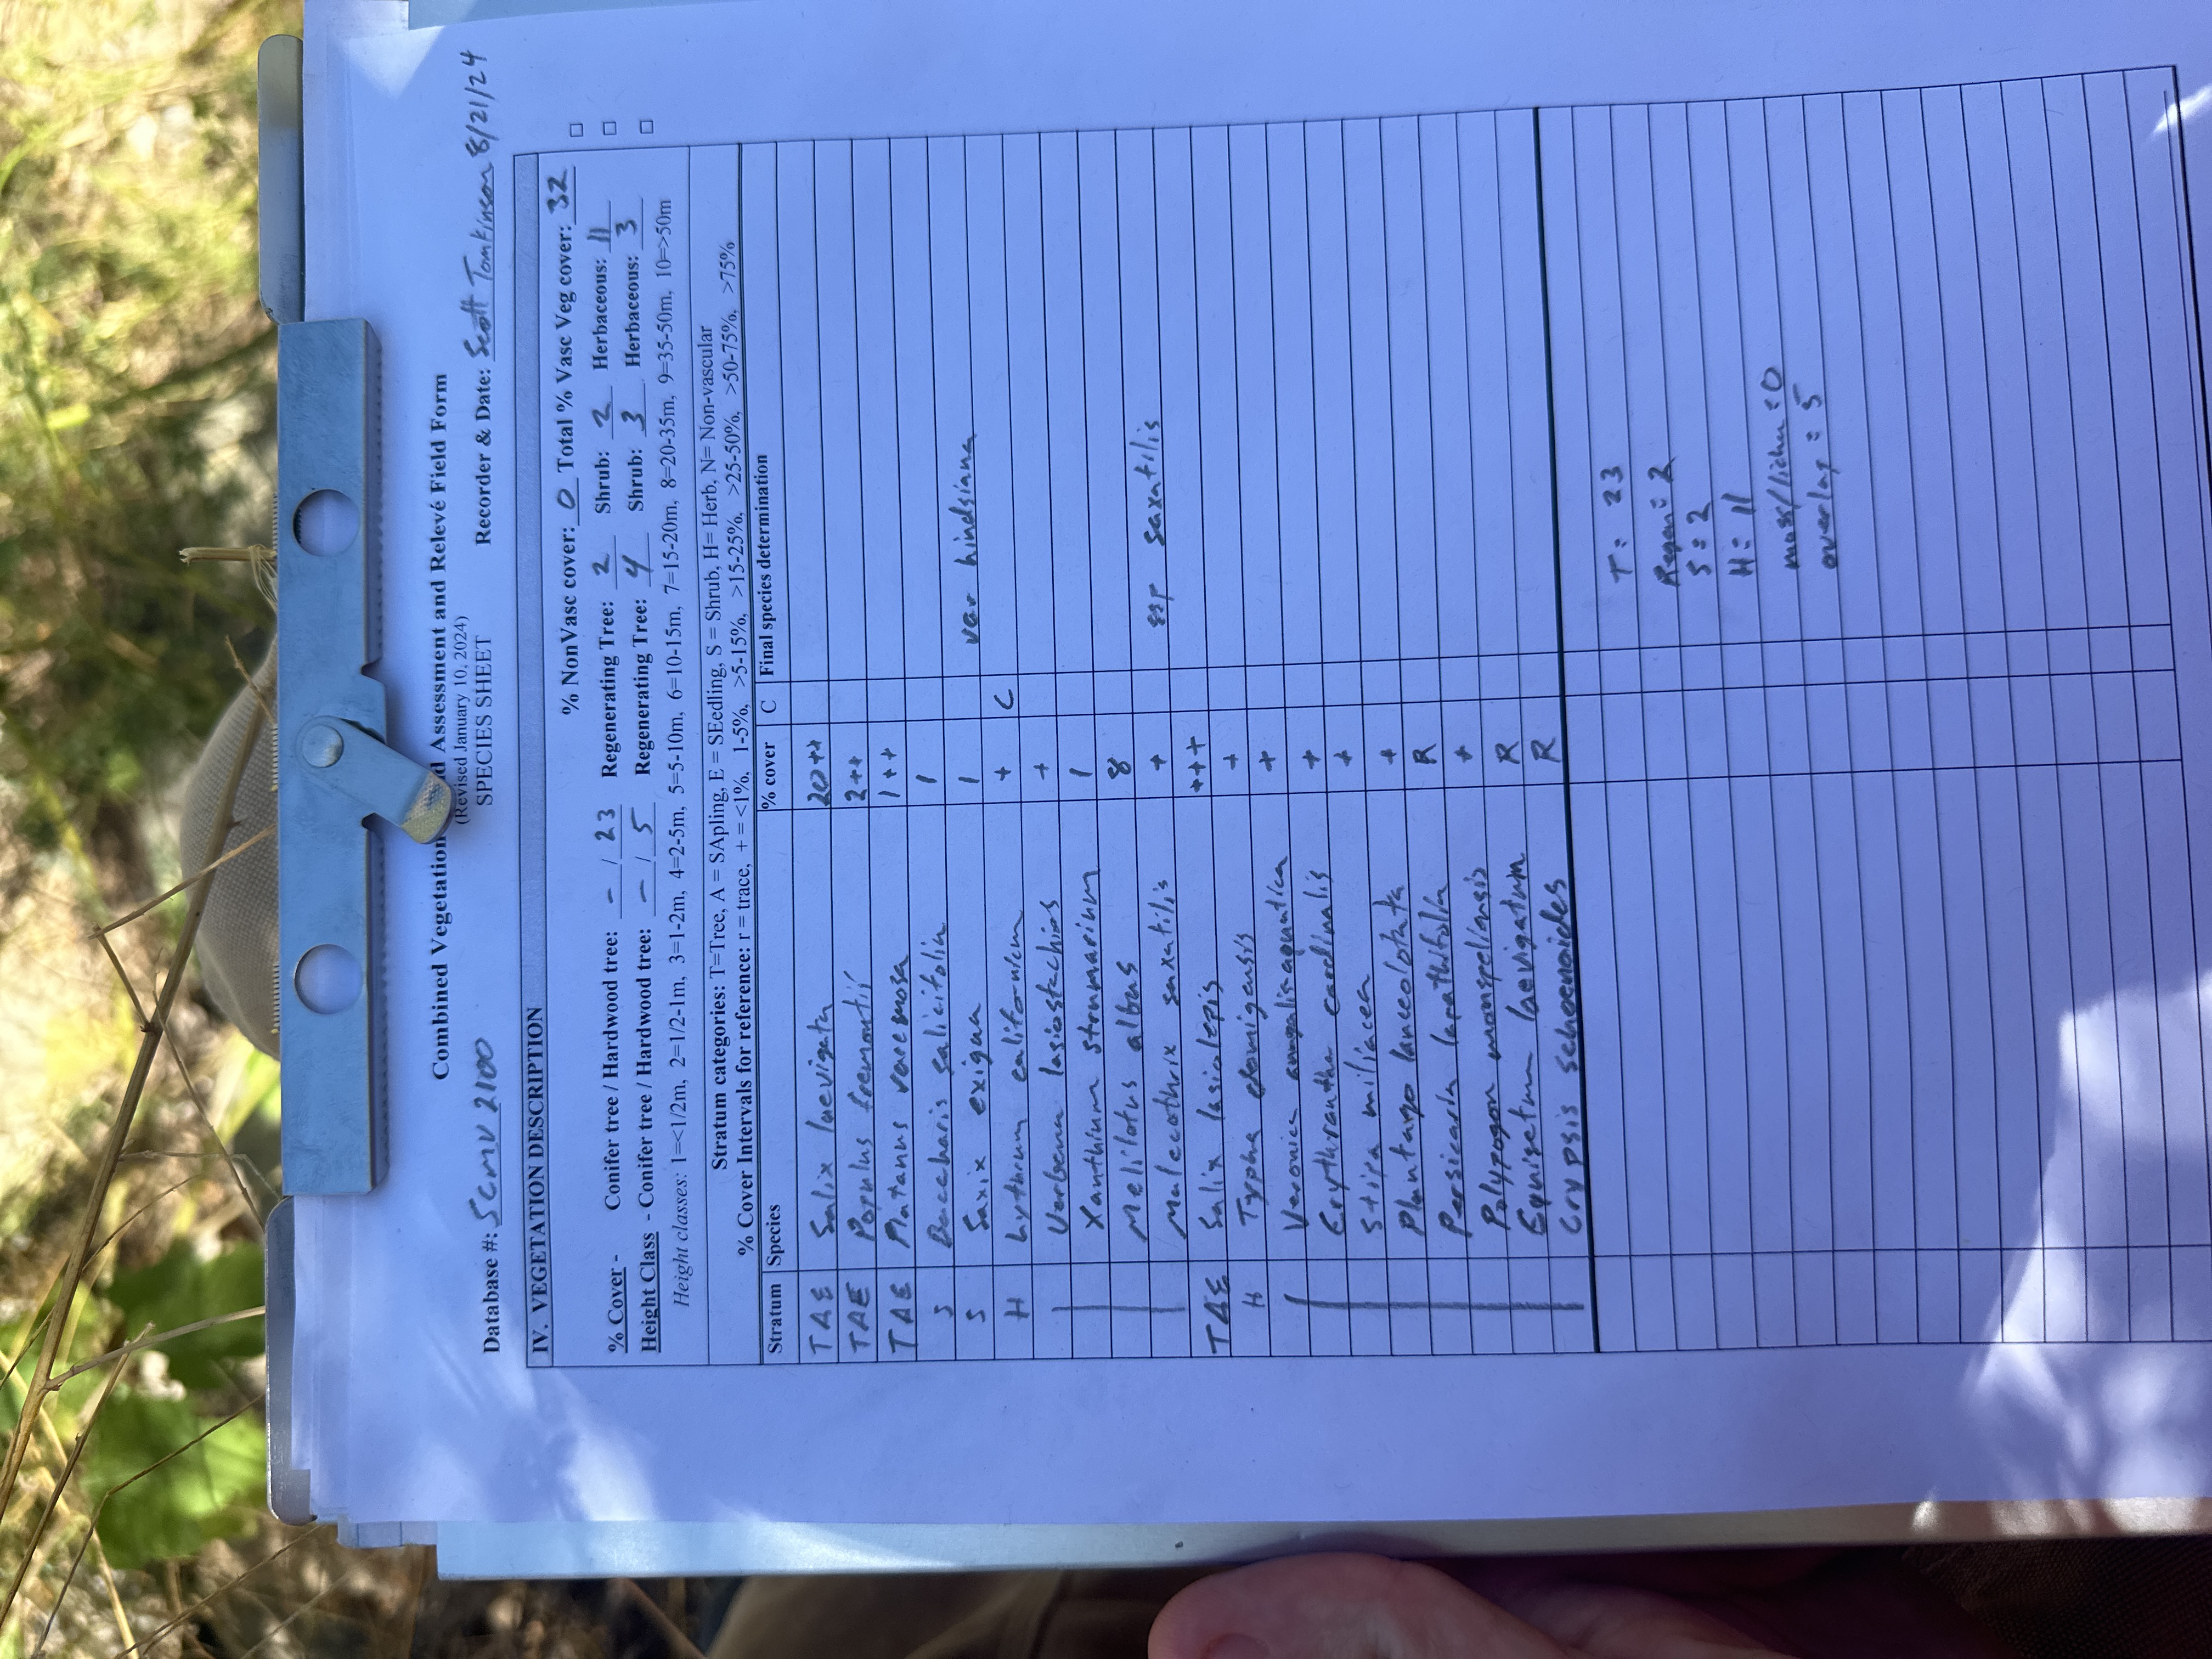 Combined Vegetation d Assessment and Relevé Field Form
(Revised January 10, 2024)
Database #: SCMV 2100 SPECIES SHEET Recorder & Date: Scott Tomkinson 8/21/24
IV. VEGETATION DESCRIPTION
% NonVasc cover: 0 Total % Vasc Veg cover: 32
% Cover - Conifer tree / Hardwood tree: - / 23 Regenerating Tree: 2 Shrub: 2 Herbaceous: 11
Height Class - Conifer tree / Hardwood tree: - / 5 Regenerating Tree: 4 Shrub: 3 Herbaceous: 3
Height classes: 1=<1/2m, 2=1/2-1m, 3=1-2m, 4=2-5m, 5=5-10m, 6=10-15m, 7=15-20m, 8=20-35m, 9=35-50m, 10=>50m
Stratum categories: T=Tree, A = SApling, E = SEedling, S = Shrub, H= Herb, N= Non-vascular
% Cover Intervals for reference: r = trace, + = <1%, 1-5%, >5-15%, >15-25%, >25-50%, >50-75%, >75%
Stratum Species % cover C Final species determination
TAE Salix laevigata 20++
TAE Populus fremontii 2++
TAE Platanus racemosa 1++
S Baccharis salicifolia 1
S Saxix exigua 1 var hindsiana
H Lythrum californicum + C
Verbena lasiostachios +
Xanthium strumarium 1
Melilotus albus 8
Malecothrix saxatilis + ssp saxatilis
TAE Salix lasiolepis +++
H Typha domigensis +
Veronica anagalisaquatica +
Erythranthe cardinalis +
Stipa miliacea +
Plantago lanceolata +
Persicaria lapathifolia R
Polypogon monspeliensis +
Equisetum laevigatum R
Crypsis schoenoides R
T: 23
Regen: 2
S = 2
H = 11
moss/lichen = 0
overlap = 5